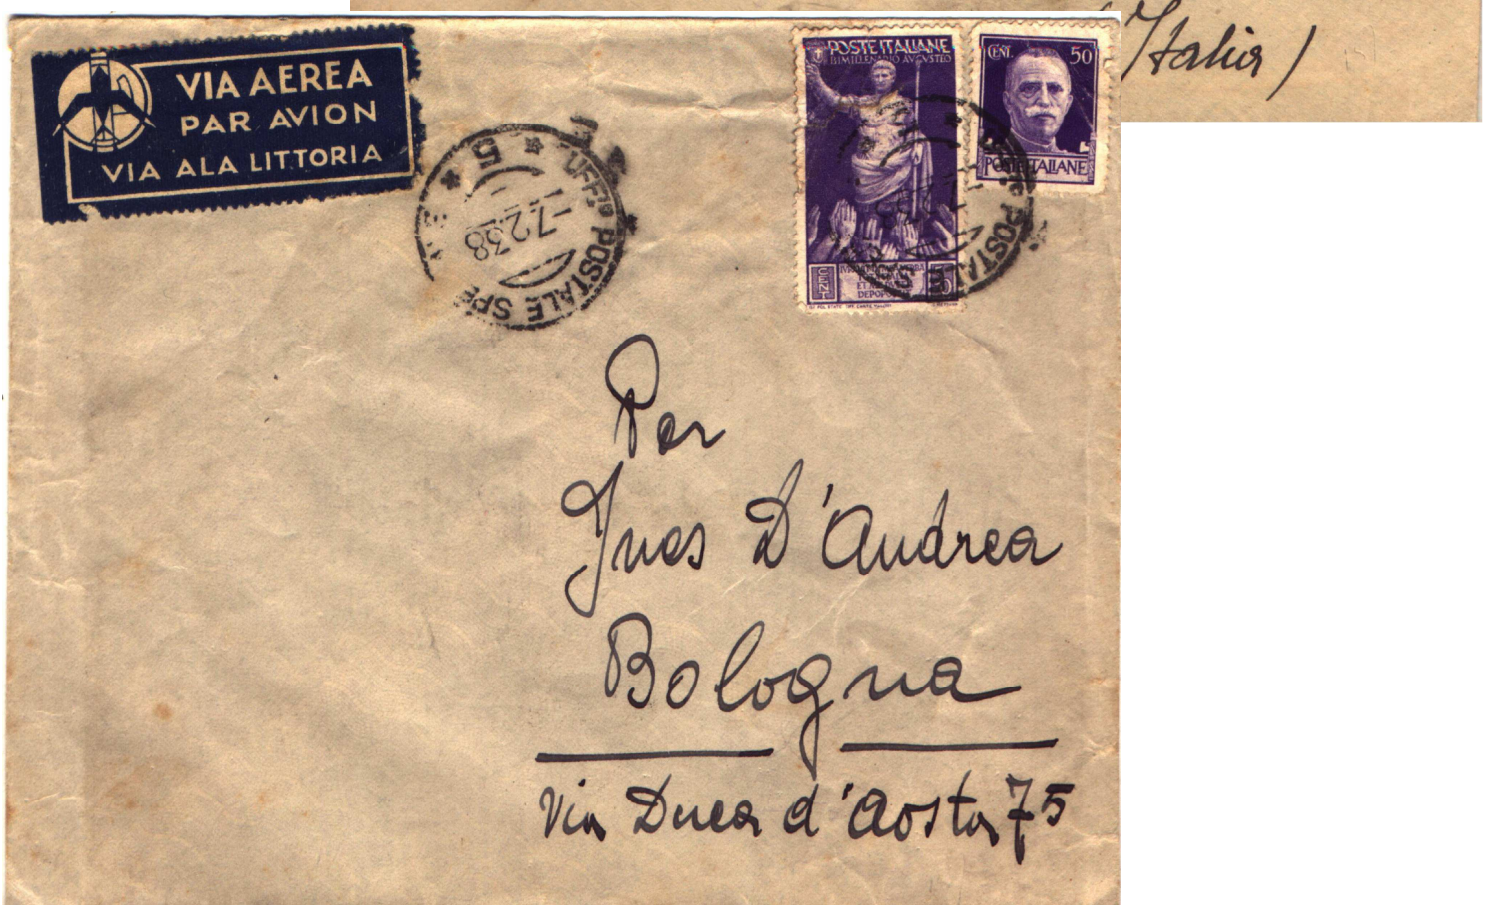 Italia)
VIA AEREA
PAR AVION
VIA ALA LITTORIA
5
UFF.º POSTALE SPE
7.2.38
POSTE ITALIANE
BIMILLENARIO AVGVSTEO
CENT
DEPOPO
CENT. 50
POSTE ITALIANE
POSTALE
Per
Ines D'Andrea
Bologna
Via Duca d'Aosta 75